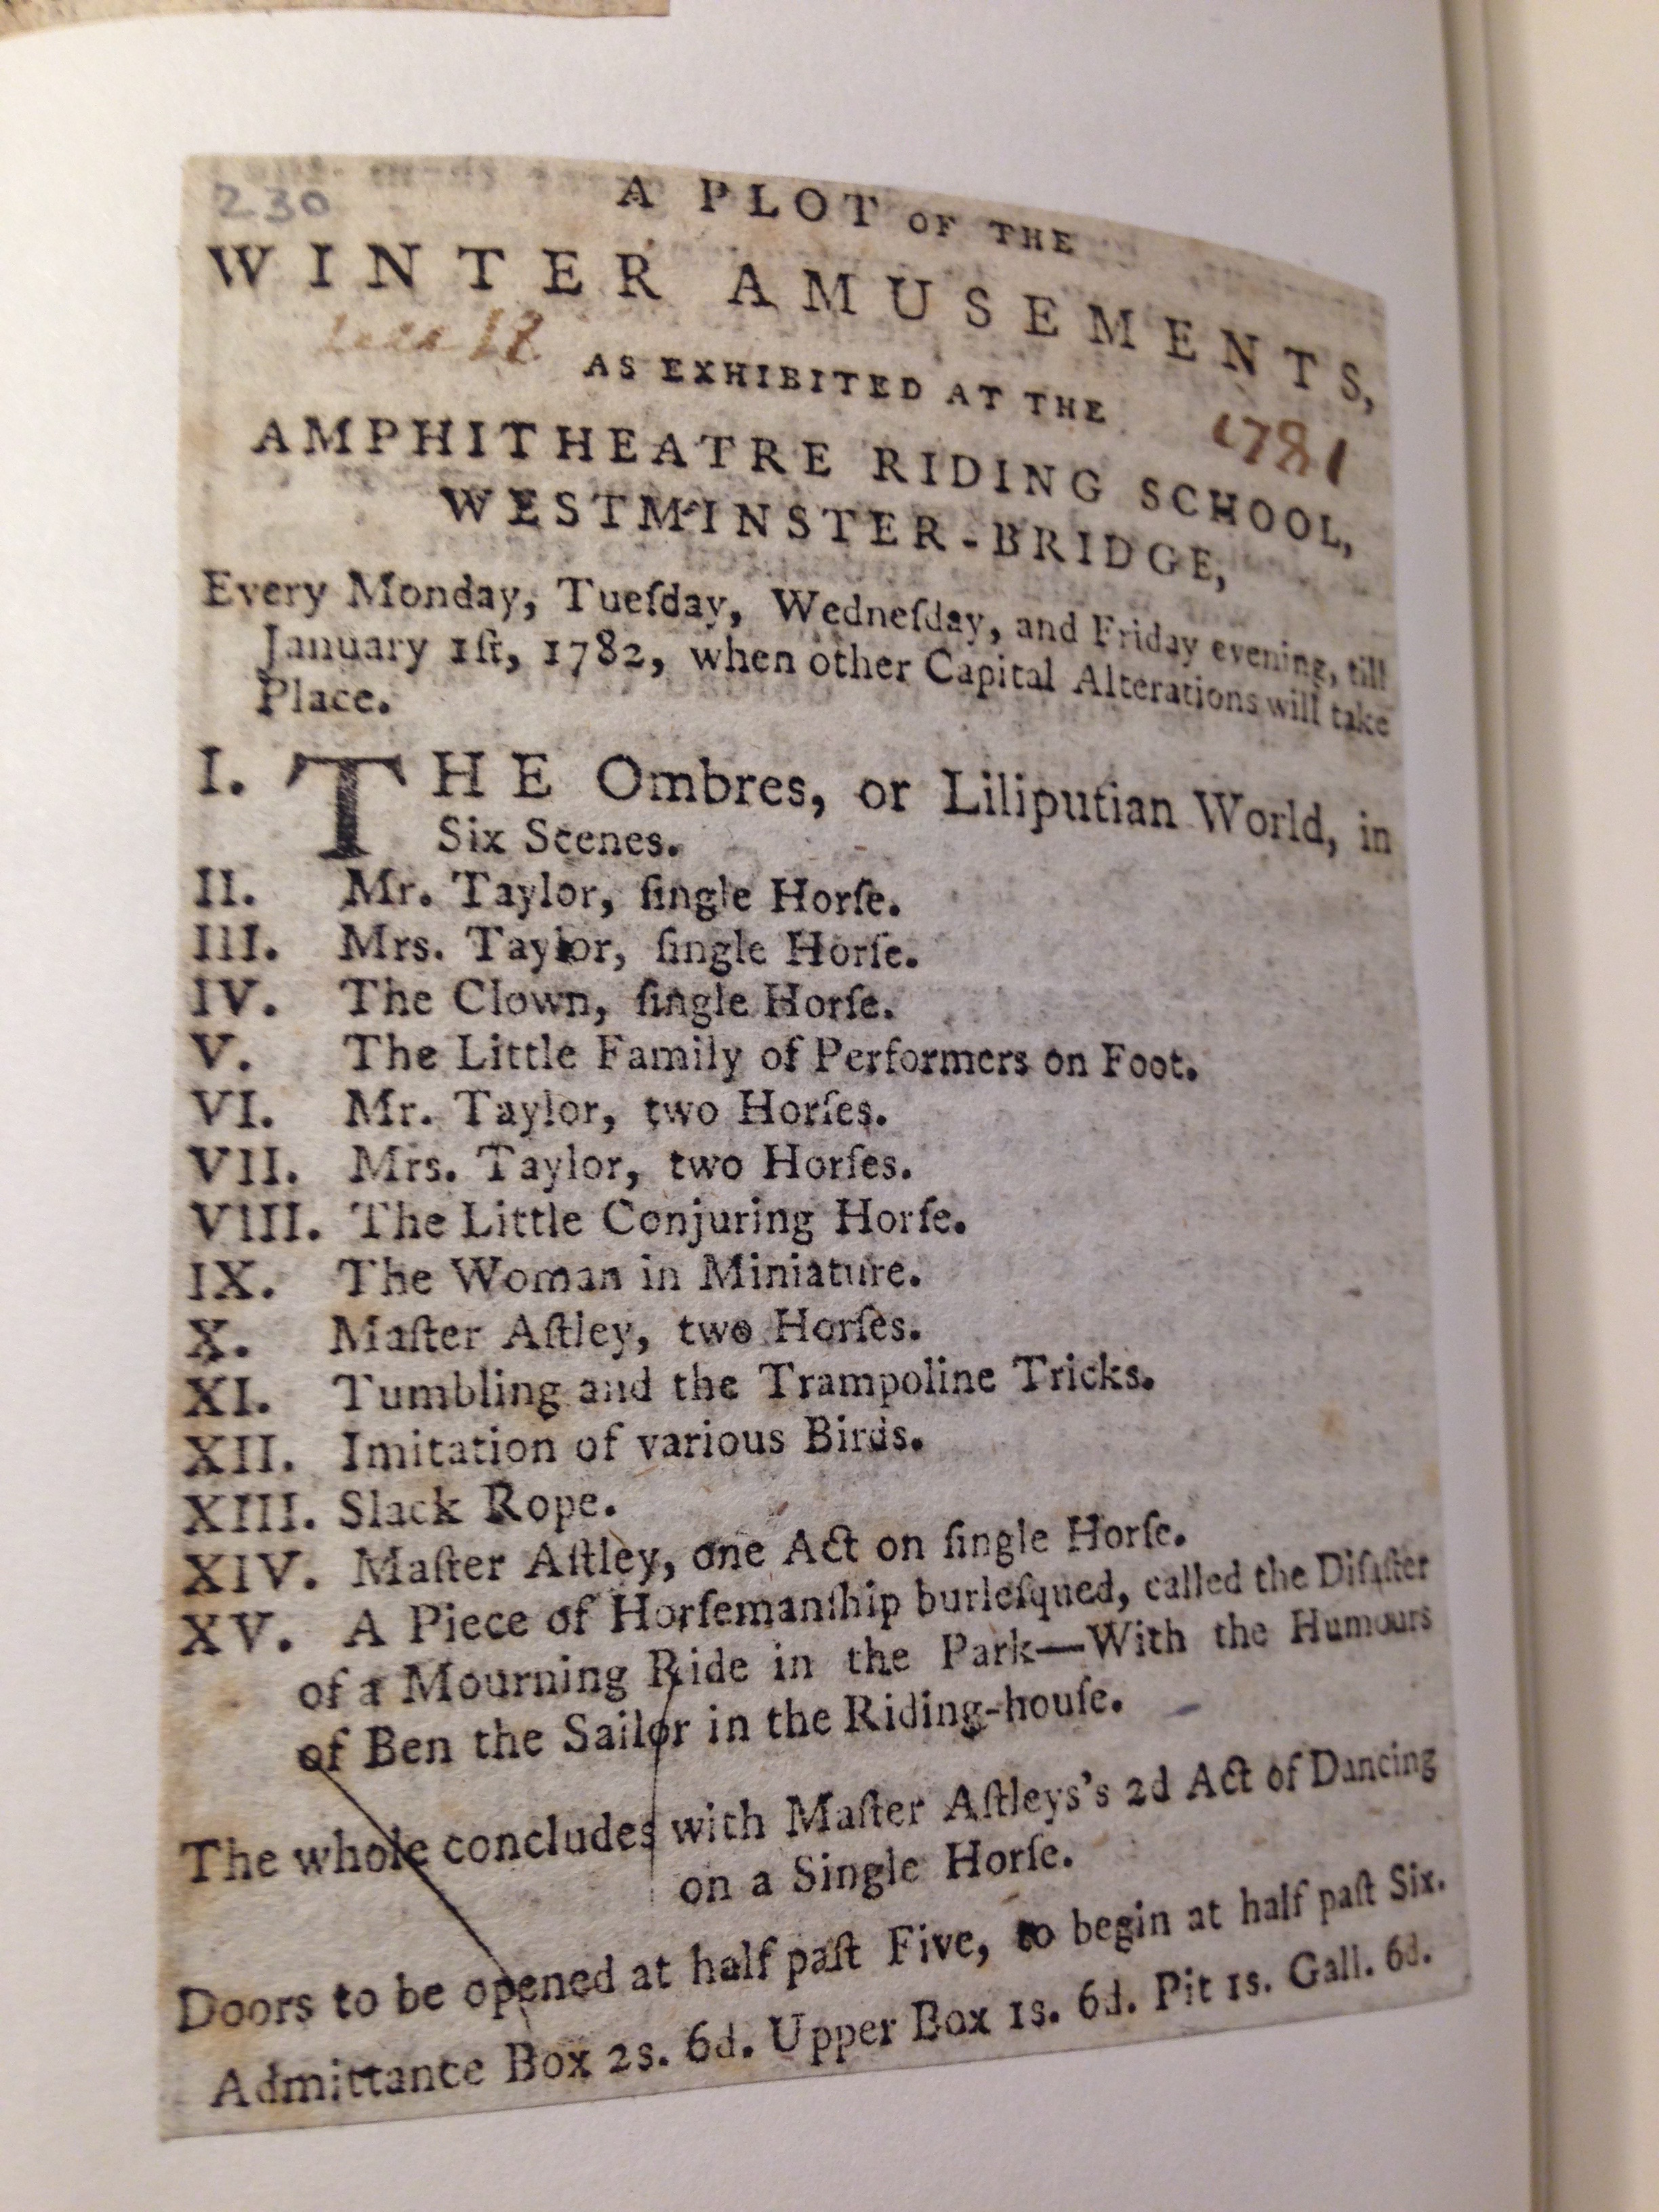 230
A PLOT OF THE
WINTER AMUSEMENTS,
18
AS EXHIBITED AT THE
1781
AMPHITHEATRE RIDING SCHOOL,
WESTMINSTER-BRIDGE,
Every Monday, Tueſday, Wedneſday, and Friday evening, till
January 1ſt, 1782, when other Capital Alterations will take
Place.
I. THE Ombres, or Liliputian World, in
Six Scenes.
II. Mr. Taylor, ſingle Horſe.
III. Mrs. Taylor, ſingle Horſe.
IV. The Clown, ſingle Horſe.
V. The Little Family of Performers on Foot.
VI. Mr. Taylor, two Horſes.
VII. Mrs. Taylor, two Horſes.
VIII. The Little Conjuring Horſe.
IX. The Woman in Miniature.
X. Maſter Aſtley, two Horſes.
XI. Tumbling and the Trampoline Tricks.
XII. Imitation of various Birds.
XIII. Slack Rope.
XIV. Maſter Aſtley, one Act on ſingle Horſe.
XV. A Piece of Horſemanſhip burleſqued, called the Diſaſter
of a Mourning Ride in the Park—With the Humours
of Ben the Sailor in the Riding-houſe.
The whole concludes with Maſter Aſtleys's 2d Act of Dancing
on a Single Horſe.
Doors to be opened at half paſt Five, to begin at half paſt Six.
Admittance Box 2s. 6d. Upper Box 1s. 6d. Pit 1s. Gall. 6d.